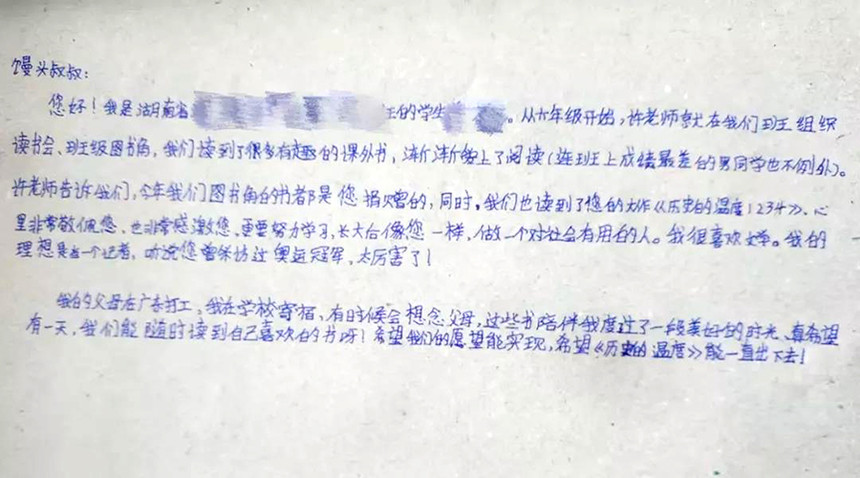 馒头叔叔：
您好！我是湖南省 班的学生 。从六年级开始，许老师就在我们班组织
读书会、班级图书角，我们读到了很多有趣的课外书，渐渐爱上了阅读（连班上成绩最差的男同学也不例外）。
许老师告诉我们，今年我们图书角的书都是您捐赠的，同时，我们也读到了您的大作《历史的温度1234》、心
里非常敬佩您、也非常感激您、更要努力学习，长大后像您一样，做一个对社会有用的人。我很喜欢文学。我的
理想是当一个记者，听说您曾采访过奥运冠军，太厉害了！
我的父母在广东打工，我在学校寄宿、有时候会想念父母，这些书陪伴我度过了一段美好的时光、真希望
有一天，我们能随时读到自己喜欢的书呀！希望我们的愿望能实现，希望《历史的温度》能一直出下去！